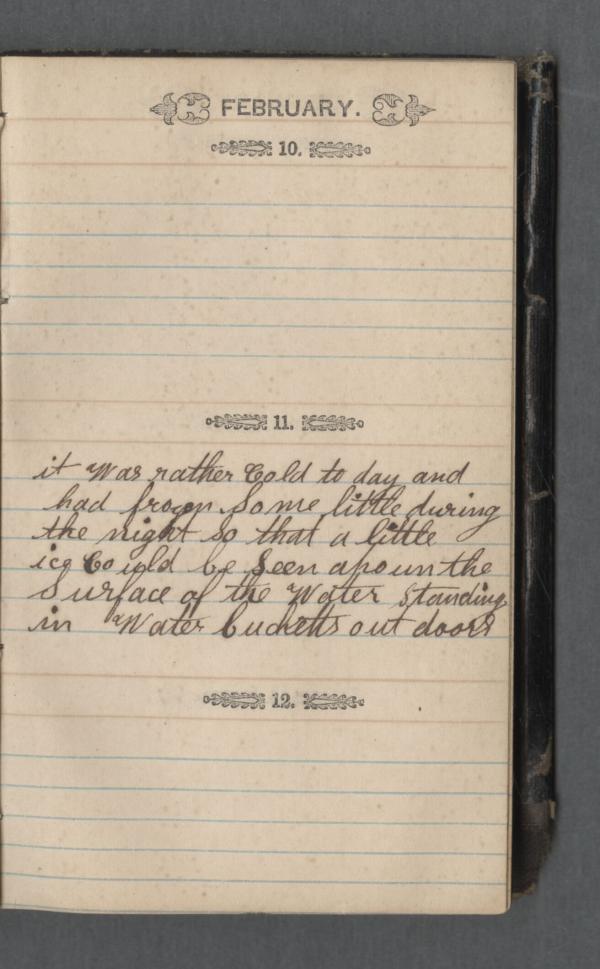 FEBRUARY.
10.
11.
it Was rather Cold to day and
had frozen Some little during
the night So that a little
ice Could be Seen apoun the
Surface of the Water Standing
in Water bucketts out doors
12.